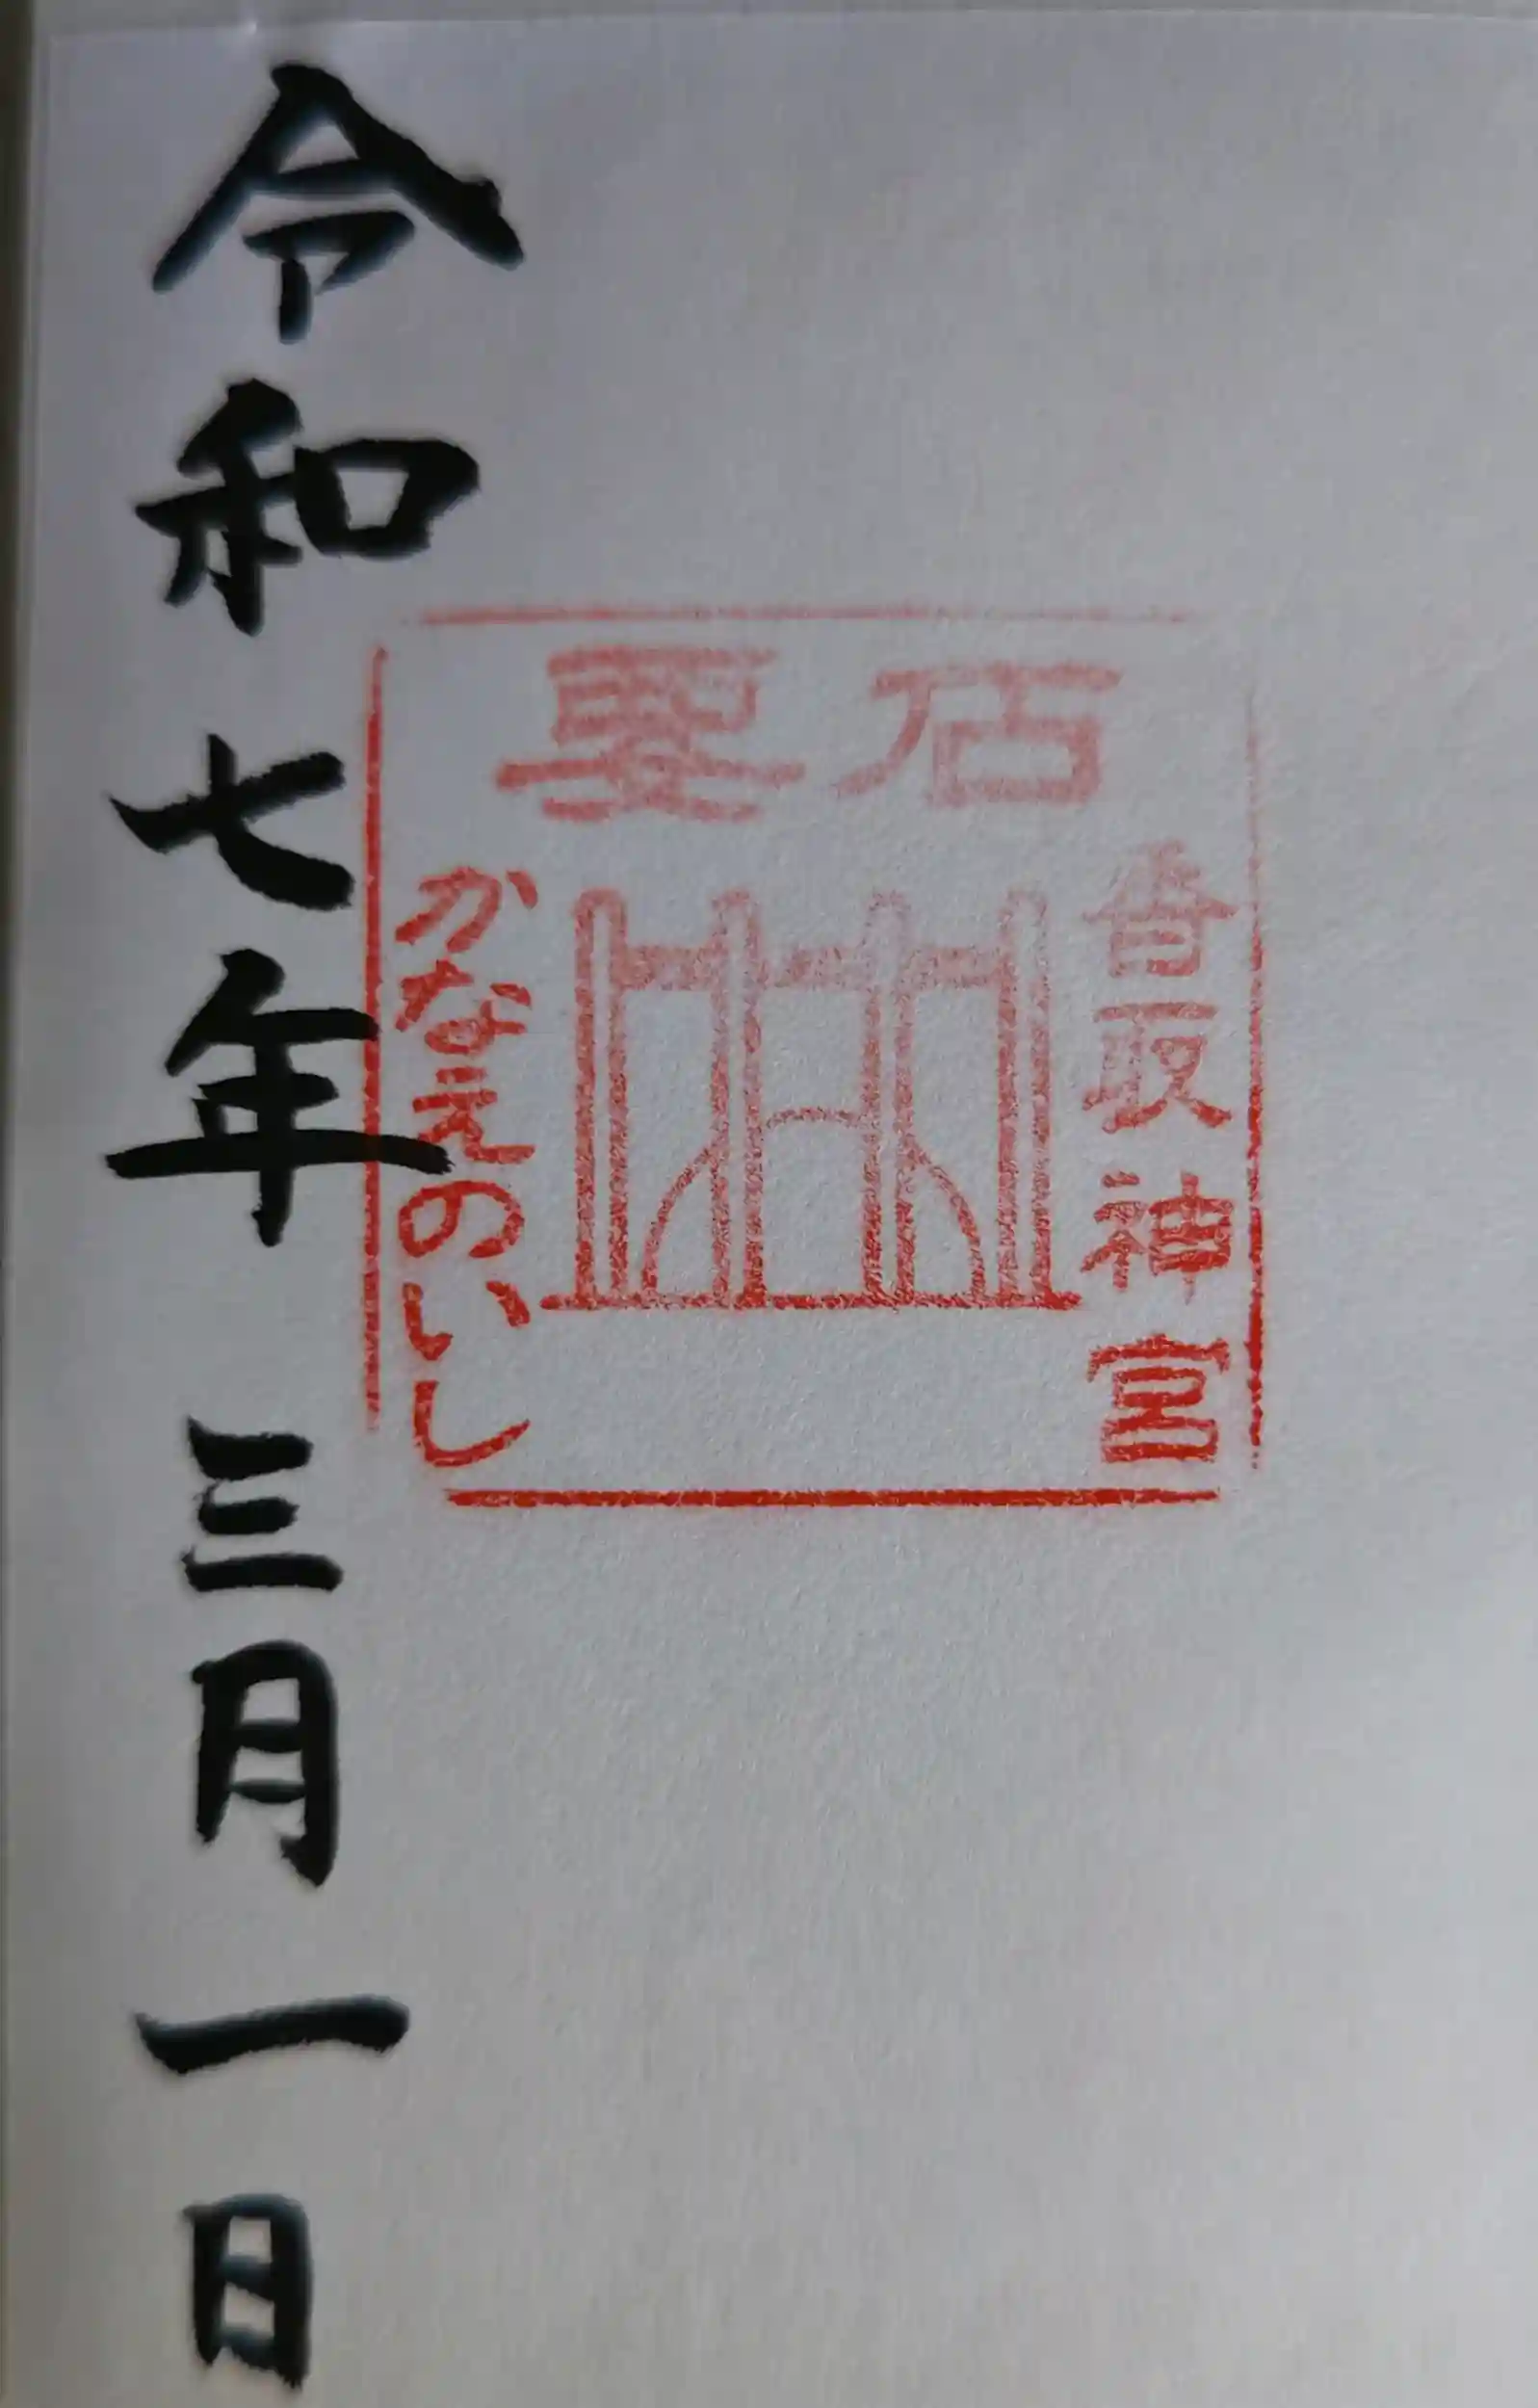 要石
香取神宮
かなえのいし
令和七年三月一日